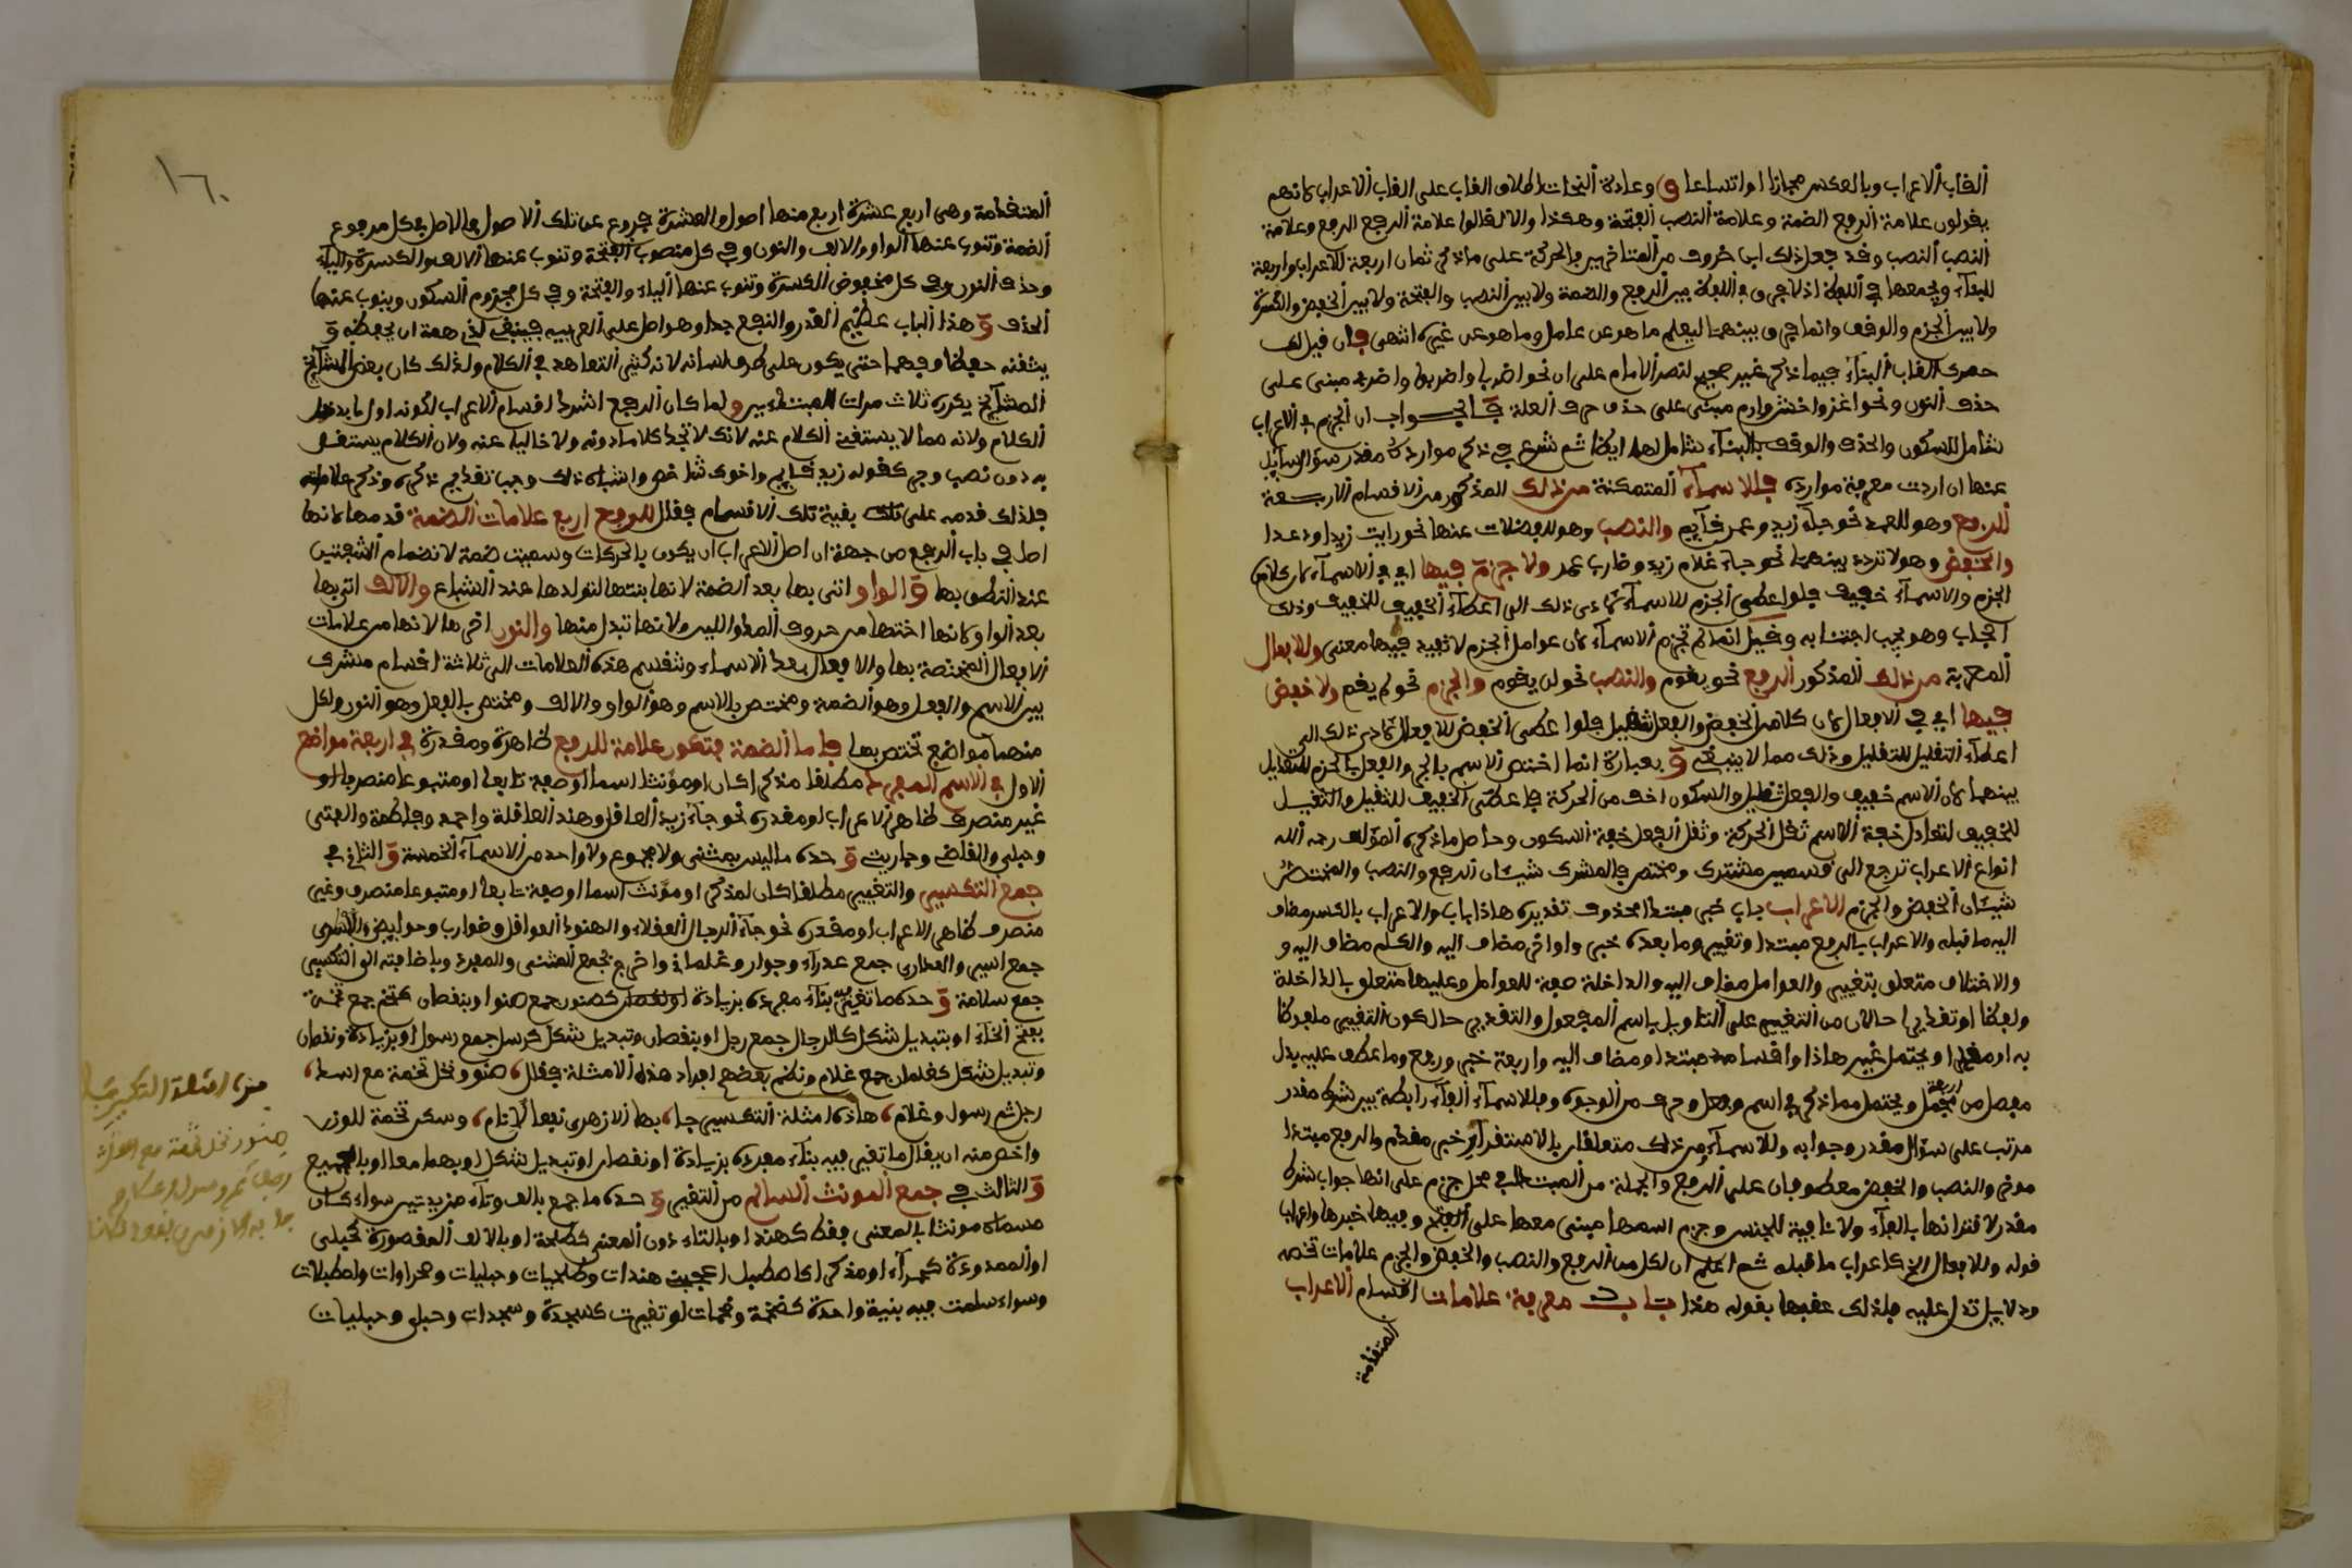 ألقاب ألاعراب وبالعكس مجازا او اتساعا وعادة النحات اطلاق القاب على القاب ألاعراب كانهم
يقولون علامة الرفع الضمة وعلامة النصب ألفتحة وهكذا والا لقالوا علامة ألرفع الرفع وعلامة
النصب ألنصب وقد جعل ذلك ابن خروف من المتاخرين والحركة على ما ذكر ثمان اربعة للاعراب واربعة
للبناء ويجمعها في اللفظ اذ لا فرق في اللفظ بين ألرفع والضمة ولا بين ألنصب والفتحة ولا بين ألخفض والكسرة
ولا بين ألجزم والوقف وانما فرق بينهما ليعلم ما هو عن عامل وما هو عن غيره انتهى فان قيل
حصره القاب ألبناء فيما ذكر غير صحيح لنص الامام على ان نحو اضربا واضربوا واضربي مبنى على
حذف النون ونحو اغز واخش وارم مبنى على حذف حرف ألعلة فالجواب ان ألجزم في الاعراب
شامل للسكون والحذف والوقف بالبناء شامل لهما ايضا ثم شرع في ذكر موارده مقدر سؤال سايل
عنها ان اردت معرفة موارده فللاسماء المتمكنة من ذلك المذكور من الاقسام الاربعة
ألرفع وهو للعمد نحو جاء زيد وعمر قايم والنصب وهو للفضلات عنها نحو رايت زيدا وعدا
والخفض وهو لا تردد بينهما نحو جاء غلام زيد وضارب عمر ولا جزم فيها اي في الاسماء لان كلا من
الجزم والاسماء خفيف فلو اعطى ألجزم للاسماء لادى ذلك الى اعطاء ألخفيف للخفيف وذلك
اجحاب وهو يجب اجتنابه وقيل انما لم تجزم ألاسماء لان عوامل ألجزم لا تفيد فيها معنى وللافعال
ألمعربة من ذلك المذكور ألرفع نحو يقوم والنصب نحو لن يقوم والجزم نحو لم يقم ولا خفض
فيها اي في الافعال لان كلا من ألخفض والفعل ثقيل فلو اعطى ألخفض للافعال لادى ذلك الى
اعطاء ألثقيل للثقيل وذلك مما لا ينبغي وبعبارة انما اختص ألاسم بالجر والفعل بالجزم للتعديل
بينهما لان ألاسم خفيف والفعل ثقيل والسكون اخف من ألحركة فاعطى ألخفيف للثقيل والثقيل
للخفيف لتعادل خفة ألاسم ثقل ألحركة وثقل ألفعل خفة السكون وحاصل ما ذكره ألمؤلف رحمه الله
انواع الاعراب ترجع الى قسمين مشترك ومختص فالمشترك شيئان ألرفع والنصب والمختص
شيئان ألخفض والجزم الاعراب باب خبر مبتدا محذوف تقديره هاذا باب والاعراب بالكسر مضاف
اليه ما قبله والاعراب بالرفع مبتدا وتغيير وما بعده خبر واواخر مضاف اليه والكلم مضاف اليه و
والاختلاف متعلق بتغيير والعوامل مضاف اليه والداخلة صفة للعوامل وعليها متعلق بالداخلة
ولفظا او تقديرا حالان من ألتغيير على ألتاويل باسم ألمفعول والتقدير حال كون التغيير ملفوظا
به او مقدرا ويحتمل غير هاذا واقسامه مبتدا ومضاف اليه واربعة خبر ورفع وما عطف عليه بدل
مفصل من مجمل ويحتمل مما ذكر في اسم وفعل وحرف من ألوجوه وللاسماء ألفاء رابطة بين شرط مقدر
مرتب على سؤال مقدر وجوابه وللاسماء من ذلك متعلقان بالاستقرار خبر مقدم والرفع مبتدا
موخر والنصب والخفض معطوفان على ألرفع والجملة من ألمبتدا في محل جزم على انها جواب شرط
مقدر لاقترانها بالفاء ولا نافية للجنس وجزم اسمها مبنى معها على ألفتح وفيها خبرها واعراب
قوله وللافعال الخ كاعراب ما قبله ثم اعلم ان لكل من الرفع والنصب والخفض والجزم علامات تخصه
ودلايل تدل عليه فلذلك عقبها بقوله هذا باب معرفة علامات اقسام ألاعراب
المتقدمة
١٦٠
ألمتقدمة وهي اربع عشرة اربع منها اصول والعشرة فروع عن تلك ألاصول فالاصل في كل مرفوع
ألضمة وتنوب عنها ألواو والالف والنون وفي كل منصوب ألفتحة وتنوب عنها ألالف والكسرة والياء
وحذف ألنون وفي كل مخفوض ألكسرة وتنوب عنها ألياء والفتحة وفي كل مجزوم ألسكون وينوب عنها
ألحذف وهذا الباب عظيم ألقدر والنفع جدا وهو اصل على ألعربية فينبغي لذي همة ان يحفظه و
يتقنه حفظا وفهما حتى يكون على طرف لسانه لانه كثير التعاهد في الكلام ولذلك كان بعض ألمشايخ
المشايخ يكرره ثلاث مرات للمبتدئين ولما كان ألرفع اشرف اقسام ألاعراب لكونه اول ما يدخل
الكلام ولانه مما لا يستغنى ألكلام عنه لانك لا تجد كلاما دونه ولا خاليا عنه ولان الكلام يستقل
به دون نصب وجر كقوله زيد قايم واخوك شاخص واشباه ذلك وجب تقديم ذكره وذكر علاماته
فلذلك قدمه على تلك بقية تلك ألاقسام فقال للرفع اربع علامات الضمة قدمها لانها
اصل في باب ألرفع من جهة ان اصل الاعراب ان يكون بالحركات وسميت ضمة لانضمام ألشفتين
عند النطق بها والواو اتى بها بعد ألضمة لانها بنتها لتولدها عند الشباع والالف اتى بها
بعد ألواو لانها اختها من حروف ألمد واللين ولانها تبدل منها والنون اخرها لانها من علامات
ألافعال ألمختصة بها والافعال بعد ألاسماء وتنقسم هذه ألعلامات الى ثلاثة اقسام مشترك
بين الاسم والفعل وهو ألضمة ومختص بالاسم وهو ألواو والالف ومختص بالفعل وهو النون ولكل
منهما مواضع تختص بها فاما ألضمة فتكون علامة للرفع ظاهرة ومقدرة في اربعة مواضع
ألاول في الاسم المفرد مطلقا مذكرا كان او مؤنثا اسما او صفة تابعا او متبوعا منصرفا او
غير منصرف ظاهر الاعراب او مقدره نحو جاء زيد العاقل وهند العاقلة واحمد وفاطمة والفتى
وحبلى والقاضى وجاريتي وحده ما ليس بمثنى ولا مجموع ولا واحد من ألاسماء ألخمسة والثاني في
جمع التكسير والتغيير مطلقا كان لمذكر او مؤنث اسما او صفة تابعا او متبوعا منصرف وغير
منصرف ظاهر الاعراب او مقدره نحو جاء الرجال العقلاء والهنود ألعواقل وضوارب وحوايض والاسرى
جمع اسير والعذارى جمع عذراء وجوار وغلماني واخرج بجمع ألمثنى والمفرد وباضافته الى التكسير
جمع سلامة وحده ما تغير فيه بناء مفرده بزيادة كصنوان جمع صنو او بنقصان كتخم جمع تخمة
بفتح الخاء او بتبديل شكل كالرجال جمع رجل او بنقصان وتبديل شكل كرسل جمع رسول او بزيادة ونقصان
وتبديل شكل كغلمان جمع غلام ونظم بعضهم افراد هذه ألامثلة فقال صنو ونخل تخمة مع اسد
رجل ثم رسول وغلام، هاذه امثلة ألتكسير جا، بها ألازهرى نفعا لانام، وسكن تخمة للوزن
واخص منه ان يقال ما تغير فيه بناء مفرده بزيادة او نقصان او تبديل شكل او بهما معا او بالجميع
والثالث في جمع المونث السالم من ألتغيير وحده ما جمع بالف وتاء مزيدتين سواء كان
مسماه مونثا بالمعنى فقط كهند او بالتاء دون ألمعنى كطلحة او بالالف ألمقصورة كحبلى
او الممدودة كصحراء او مذكرا كاصطبل اعجبت هندات وطلحات وحبليات وصحراوات واصطبلات
وسواء سلمت فيه بنية واحدة كضخمة وضخمات او تغيرت كسجدة وسجدات وحبلى وحبليات